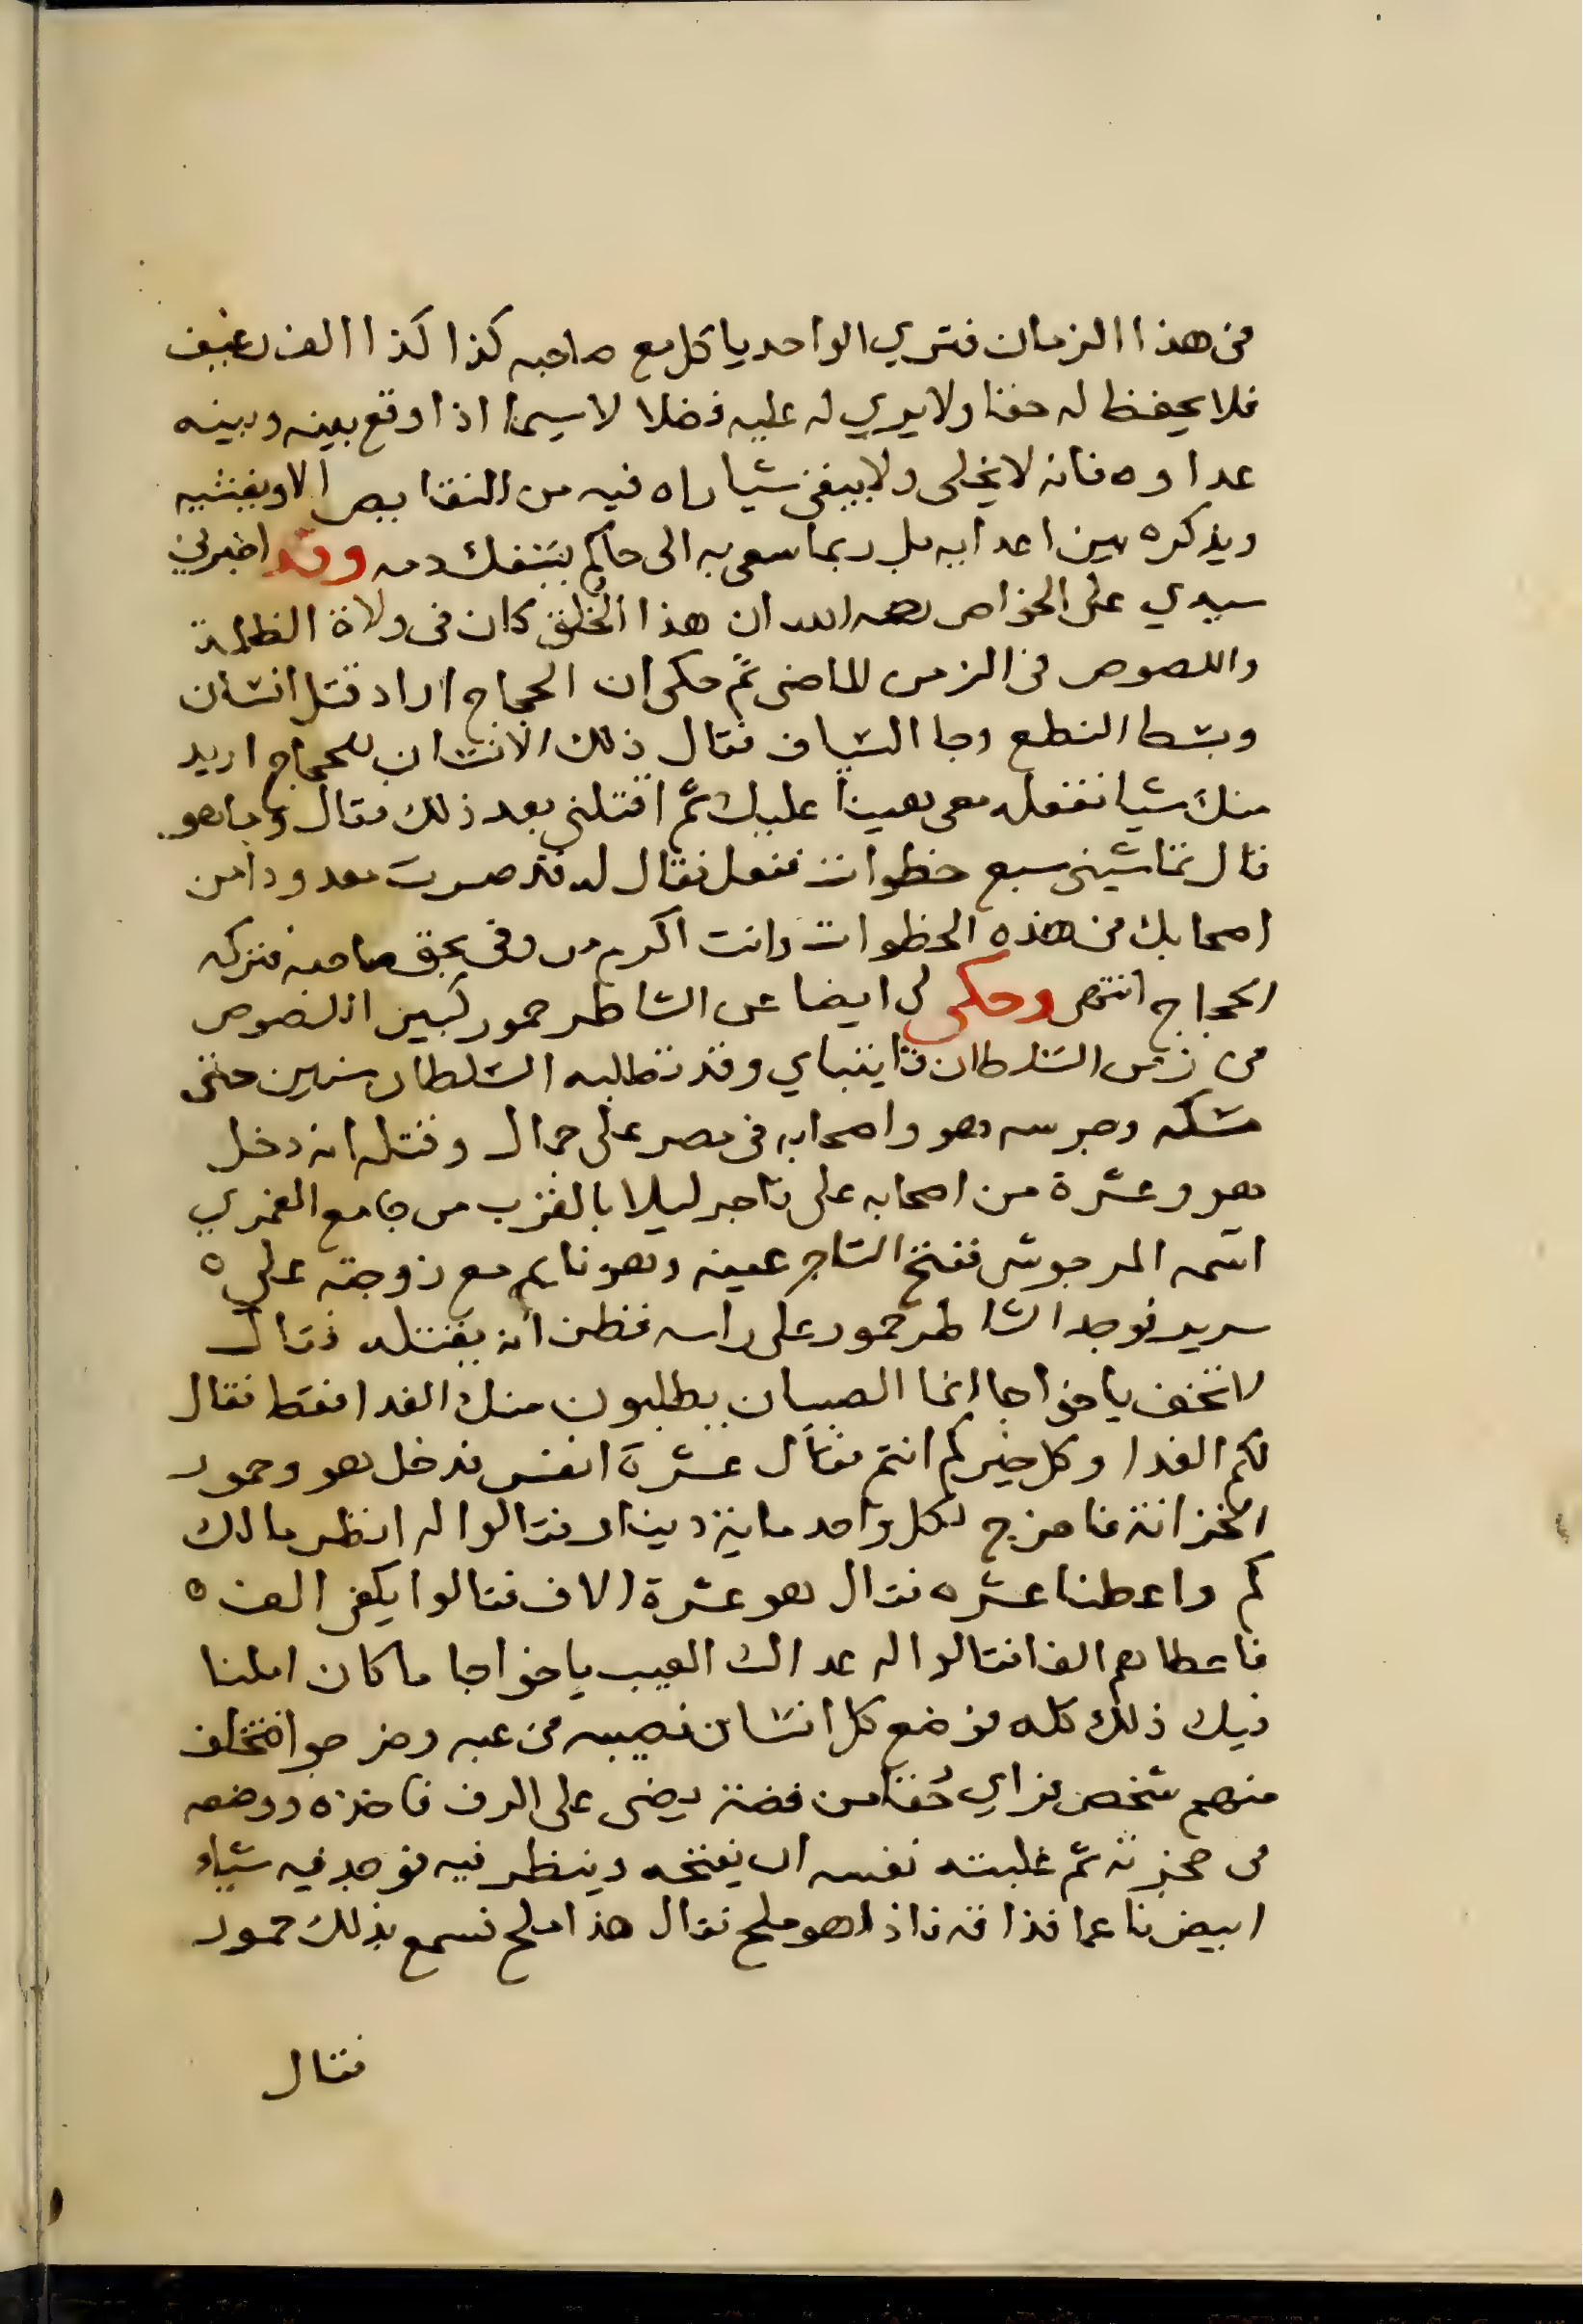 في هذا الزمان فتري الواحد ياكل مع صاحبه كذا كذا الف رغيف
فلا يحفظ له حقا ولا يري له عليه فضلا لا سيما اذا وقع بينه وبينه
عداوه فانه لا يخلى ولا يبقى شيا راه فيه من النقايص الا ويفشيه
ويذكره بين اعدايه بل ربما سعى به الى حاكم يسفك دمه وقد اخبرني
سيدي على الخواص رحمه الله ان هذا الخلق كان فى ولاة الظلمة
واللصوص في الزمن الماضى ثم حكى ان الحجاج اراد قتل انسان
وبسط النطع وجا السياف فقال ذلك الانسان للحجاج اريد
منك شيا تفعله معى هينا عليك ثم اقتلنى بعد ذلك فقال وما هو
قال تماشينى سبع خطوات ففعل فقال له قد صرت معدودا من
اصحابك في هذه الخطوات وانت اكرم من وفى بحق صاحبه فتركه
الحجاج انتهى وحكى لى ايضا عن الشاطر حمور كبير اللصوص
في زمن السلطان قايتباي وقد تطلبه السلطان سنين حتى
مسكه وجرسه هو واصحابه فى مصر على جمال وقتله انه دخل
هو وعشرة من اصحابه على تاجر ليلا بالقرب من جامع الغمري
اسمه المرجوشى ففتح التاجر عينه وهو نايم مع زوجته على ه
سرير فوجد الشاطر حمور على راسه فظن انه يقتله فقال
لا تخف يا خواجا انما الصبيان يطلبون منك الغدا فقط فقال
لكم الغدا وكل خير كم انتم فقال عشرة انفس فدخل هو وحمور
الخزانة فاخرج لكل واحد ماية دينار فقالوا له انظر مالك
كم واعطنا عشره فقال هو عشرة الاف فقالوا يكفى الف ه
فاعطاهم الفا فقالوا له عداك العيب يا خواجا ما كان املنا
فيك ذلك كله فوضع كل انسان نصيبه في عبه وخرجوا فتخلف
منهم شخص فراي حُقا من فضة يضى على الرف فاخذه ووضعه
في حجزته ثم غلبته نفسه ان يفتحه وينظر فيه فوجد فيه شيا
ابيض ناعما فذاقه فاذا هو ملح فقال هذا ملح فسمع بذلك حمور
فقال